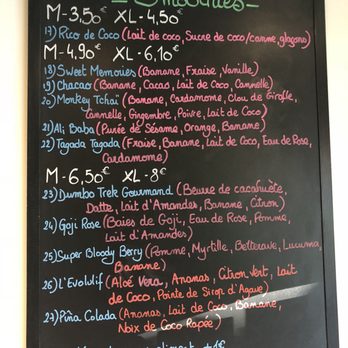 - Smoothies -
M - 3,50€ XL - 4,50€
17) Rico de Coco (Lait de coco, Sucre de coco/canne, glaçons)
M - 4,90€ XL - 6,10€
18) Sweet Memories (Banane, Fraise, Vanille)
19) Chacao (Banane, Cacao, Lait de Coco, Cannelle)
20) Monkey Tchaï (Banane, Cardamome, Clou de Girofle,
Cannelle, Gingembre, Poivre, Lait de Coco)
21) Ali Baba (Purée de Sésame, Orange, Banane)
22) Tagada Tagada (Fraise, Banane, Lait de Coco, Eau de Rose,
Cardamome)
M - 6,50€ XL - 8€
23) Dumbo Trek Gourmand (Beurre de cacahuète,
Datte, Lait d'Amandes, Banane, Citron)
24) Goji Rose (Baies de Goji, Eau de Rose, Pomme,
Lait d'Amandes)
25) Super Bloody Berry (Pomme, Myrtille, Betterave, Lucuma
Banane)
26) L'Evolutif (Aloé Vera, Ananas, Citron Vert, Lait
de Coco, Pointe de Sirop d'Agave)
27) Piña Colada (Ananas, Lait de Coco, Banane,
Noix de Coco Rapée)
+1€